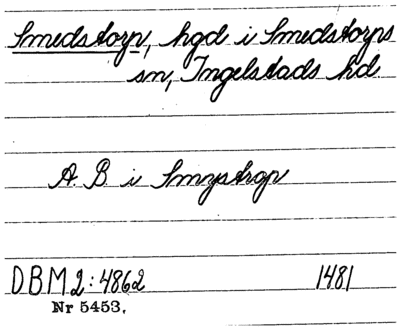 Smedstorp, hgd i Smedstorps
sn, Ingelstads hd
A. B. i Smystrop
DBM 2:4862 1481
Nr 5453.